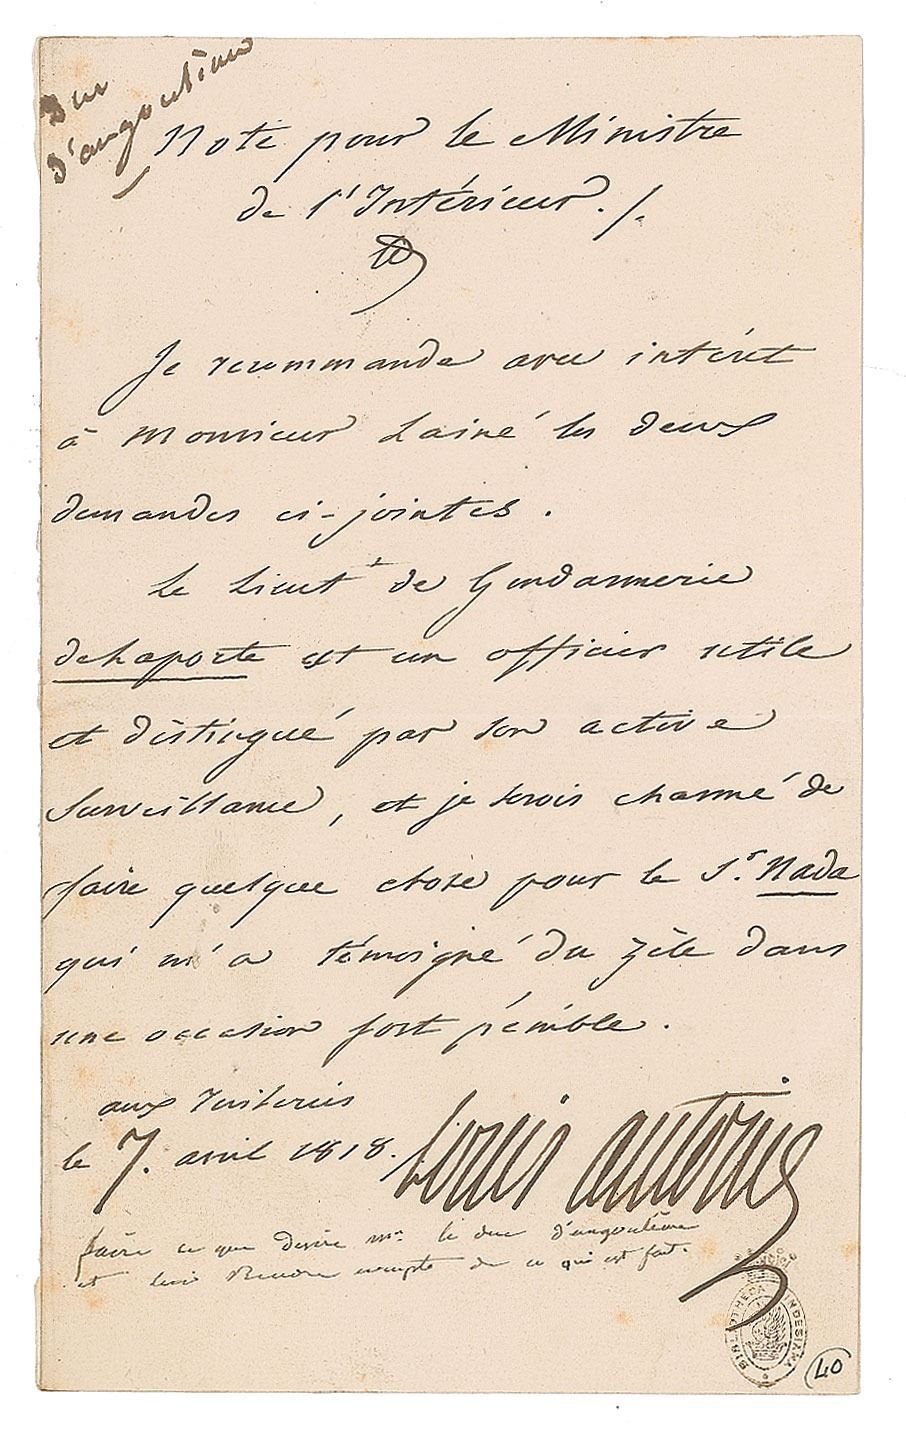 Duc
d'angoulème
Note pour le Ministre
de l'Intérieur ./.
Je recommande avec intérêt
à Monsieur Lainé les deux
demandes ci-jointes.
Le Lieut.t de Gendarmerie
deLaporte est un officier utile
et distingué par son active
Surveillance, et je serois charmé de
faire quelque chose pour le S.r Nada
qui m'a témoigné du zèle dans
une occasion fort pénible.
aux Tuileries
le 7. avril 1818. Louis Antoine
faire ce que desire Mr. le duc d'angoulême
et lui Rendre compte de ce qui est fait.
BIBLIOTHECA LINDESIANA
40